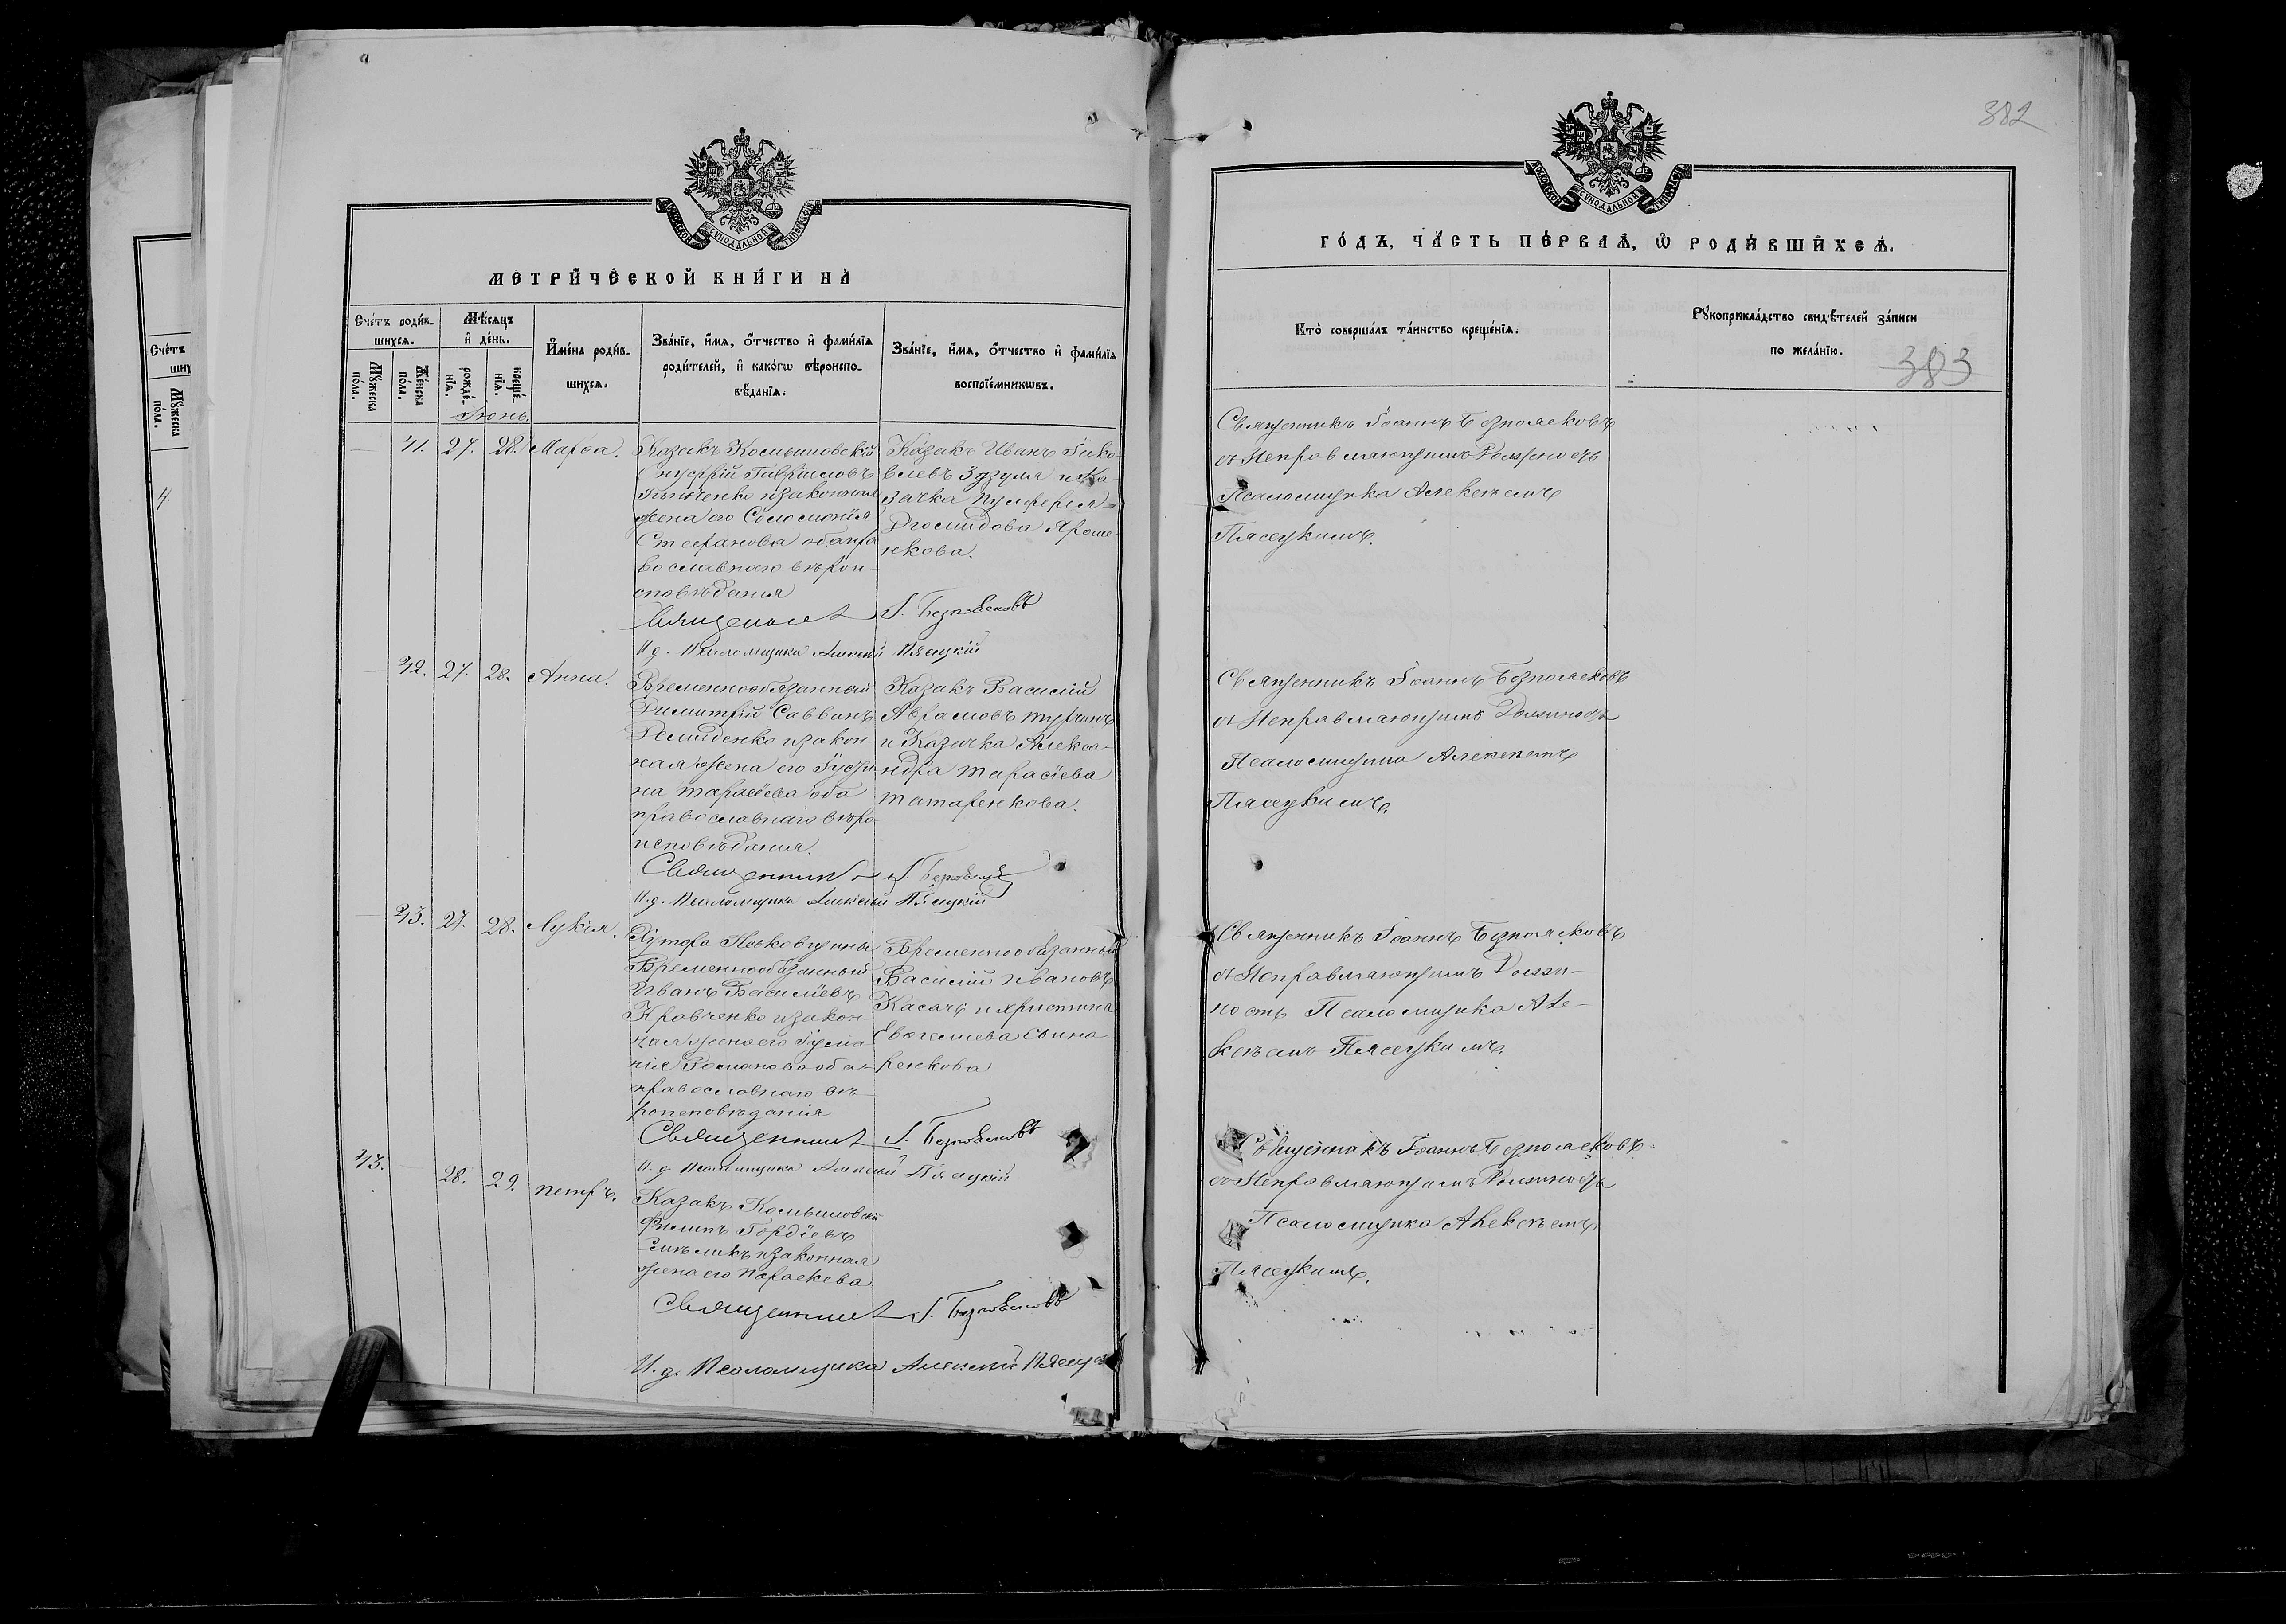 МЕТРИЧЕСКОЙ КНИГИ НА
Счетъ родив-
шихся.
Мѣсяцъ
и день.
Имена родив-
шихся.
Званіе, имя, отчество и фамилія
родителей, и какогѡ вѣроиспо-
вѣданія.
Званіе, имя, отчество и фамилія
воспріемниковъ.
Мужеска
пола.
Женска
пола.
рожде-
нія.
креще-
нія.
Іюнь.
41. 27. 28. Марѳа.
Казакъ Комышовскій
Гавріиловъ
изаконная
жена его Соломонія
Стефанова оба пра
вославнаго вѣрои-
сповѣданія
Казакъ Иванъ Яко
влевъ Зузуля и Ка-
зачка
Яроше-
нкова.
Священникъ І. Безпоясковъ
И. д. Псаломщика Алексѣй Пясецкій
42. 27. 28. Анна.
Временнообязанный
Димитрій Саввинъ
Демиденко изакон-
ная жена его Іусти
на Тарасіева оба
православнаго вѣро-
исповѣданія.
Казакъ Василій
Аврамовъ Турчинъ
и Казачка Алекса-
ндра Тарасіева
Татаренкова.
Священникъ І. Безпоясковъ
И. д. Псаломщика Алексѣй Пясецкій
43. 27. 28. Лукія.
Хутора
Временнообязанный
Иванъ Василіевъ
Кравченко изакон-
ная жена его
Романова оба
православнаго вѣ-
роисповѣданія
Временнообязанный
Василій Ивановъ
Касачъ и Христина
Евина-
ренкова
Священникъ І. Безпоясковъ
И. д. Псаломщика Алексѣй Пясецкій
43. 28. 29. Петръ.
Казакъ Комышовскій
Филипъ Гордіевъ
изаконная
жена его Параскева
Священникъ І. Безпоясковъ
И. д. Псаломщика Алексѣй Пясецкій
382
ГОДЪ, ЧАСТЬ ПЕРВАЯ, Ѡ РОДИВШИХСЯ.
Кто совершалъ таинство крещенія.
Рукоприкладство свидѣтелей записи
по желанію.
383
Священникъ Іоаннъ Безпоясковъ
съ Исправляющимъ Должность
Псаломщика Алексѣемъ
Пясецкимъ.
Священникъ Іоаннъ Безпоясковъ
съ Исправляющимъ Должность
Псаломщика Алексѣемъ
Пясецкимъ.
Священникъ Іоаннъ Безпоясковъ
съ Исправляющимъ Должн-
ость Псаломщика Але-
ксѣемъ Пясецкимъ.
Священникъ Іоаннъ Безпоясковъ
съ Исправляющимъ Должность
Псаломщика Алексѣемъ
Пясецкимъ.